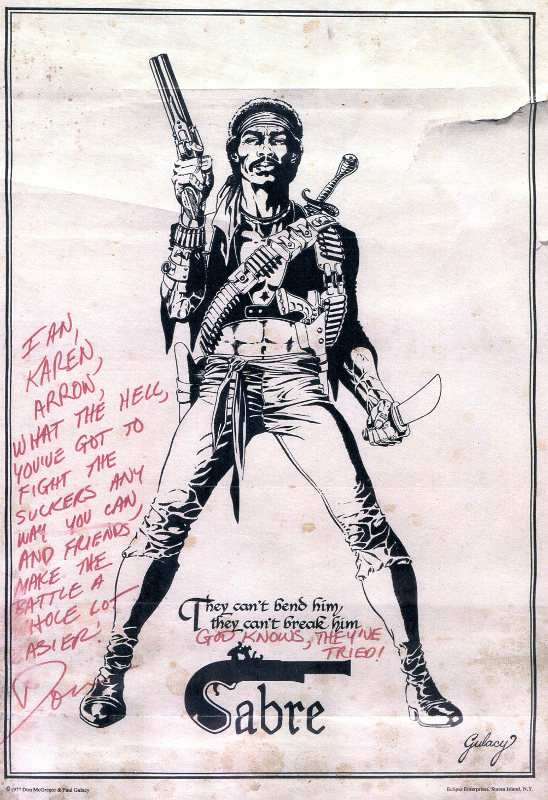 IAN,
KAREN,
ARRON,
WHAT THE HELL,
YOU'VE GOT TO
FIGHT THE
SUCKERS ANY
WAY YOU CAN,
AND FRIENDS
MAKE THE
BATTLE A
'HOLE LOT
ASIER!
Don
They can't bend him,
they can't break him
GOD KNOWS, THEY'VE
TRIED!
Sabre
Gulacy
© 1977 Don McGregor & Paul Gulacy
Eclipse Enterprises, Staten Island, N.Y.